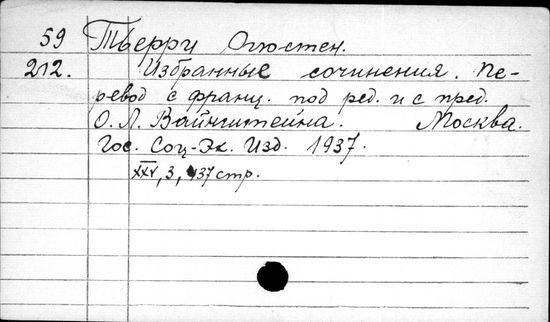 59 Тьерри Огюстен.
212. Избранные сочинения. Пе-
ревод с франц. под ред. и с пред.
О. Л. Вайнштейна. Москва.
Гос. Соц-Эк. Изд. 1937.
XXV, 3, 437 стр.